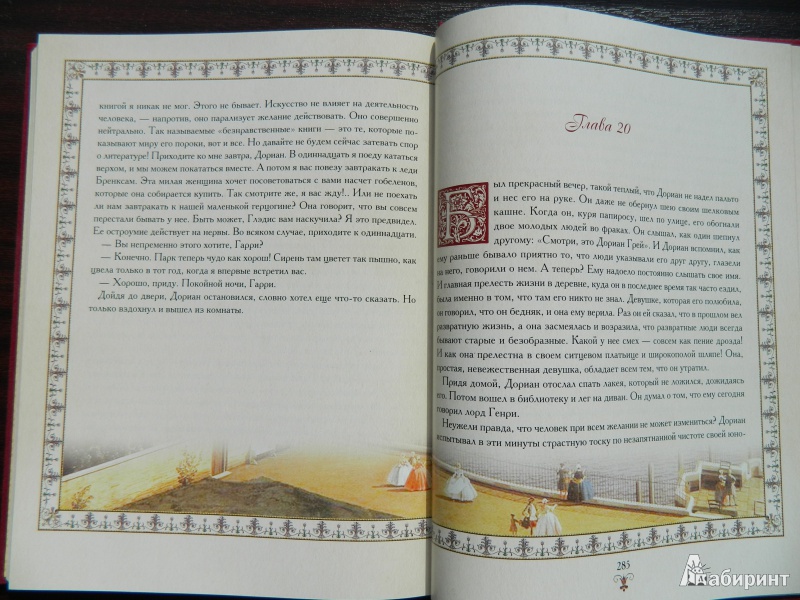 книгой я никак не мог. Этого не бывает. Искусство не влияет на деятельность
человека, — напротив, оно парализует желание действовать. Оно совершенно
нейтрально. Так называемые «безнравственные» книги — это те, которые по-
казывают миру его пороки, вот и все. Но давайте не будем сейчас затевать спор
о литературе! Приходите ко мне завтра, Дориан. В одиннадцать я поеду кататься
верхом, и мы можем покататься вместе. А потом я вас повезу завтракать к леди
Бренксам. Эта милая женщина хочет посоветоваться с вами насчет гобеленов,
которые она собирается купить. Так смотрите же, я вас жду!.. Или не поехать
ли нам завтракать к нашей маленькой герцогине? Она говорит, что вы совсем
перестали бывать у нее. Быть может, Глэдис вам наскучила? Я это предвидел.
Ее остроумие действует на нервы. Во всяком случае, приходите к одиннадцати.
— Вы непременно этого хотите, Гарри?
— Конечно. Парк теперь чудо как хорош! Сирень там цветет так пышно, как
цвела только в тот год, когда я впервые встретил вас.
— Хорошо, приду. Покойной ночи, Гарри.
Дойдя до двери, Дориан остановился, словно хотел еще что-то сказать. Но
только вздохнул и вышел из комнаты.
Глава 20
Был прекрасный вечер, такой теплый, что Дориан не надел пальто
и нес его на руке. Он даже не обернул шею своим шелковым
кашне. Когда он, куря папиросу, шел по улице, его обогнали
двое молодых людей во фраках. Он слышал, как один шепнул
другому: «Смотри, это Дориан Грей». И Дориан вспомнил, как
ему раньше бывало приятно то, что люди указывали его друг другу, глазели
на него, говорили о нем. А теперь? Ему надоело постоянно слышать свое имя.
И главная прелесть жизни в деревне, куда он в последнее время так часто ездил,
была именно в том, что там его никто не знал. Девушке, которая его полюбила,
он говорил, что он бедняк, и она ему верила. Раз он ей сказал, что в прошлом вел
развратную жизнь, а она засмеялась и возразила, что развратные люди всегда
бывают старые и безобразные. Какой у нее смех — совсем как пение дрозда!
И как она прелестна в своем ситцевом платьице и широкополой шляпе! Она,
простая, невежественная девушка, обладает всем тем, что он утратил.
Придя домой, Дориан отослал спать лакея, который не ложился, дожидаясь
его. Потом вошел в библиотеку и лег на диван. Он думал о том, что ему сегодня
говорил лорд Генри.
Неужели правда, что человек при всем желании не может измениться? Дориан
испытывал в эти минуты страстную тоску по незапятнанной чистоте своей юно-
285
Лабиринт